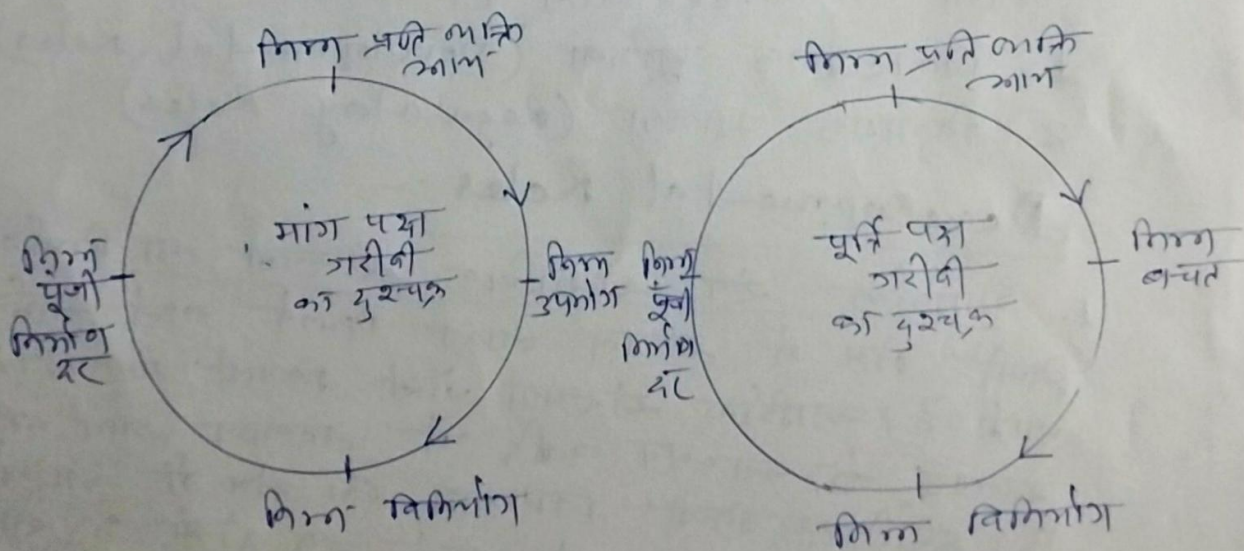 निम्न प्रति व्यक्ति
आय
मांग पक्ष
गरीबी
का दुश्चक्र
निम्न
उपभोग
निम्न विनियोग
निम्न
पूंजी
निर्माण
दर
निम्न प्रति व्यक्ति
आय
पूर्ति पक्ष
गरीबी
का दुश्चक्र
निम्न
बचत
निम्न विनियोग
निम्न
पूंजी
निर्माण
दर